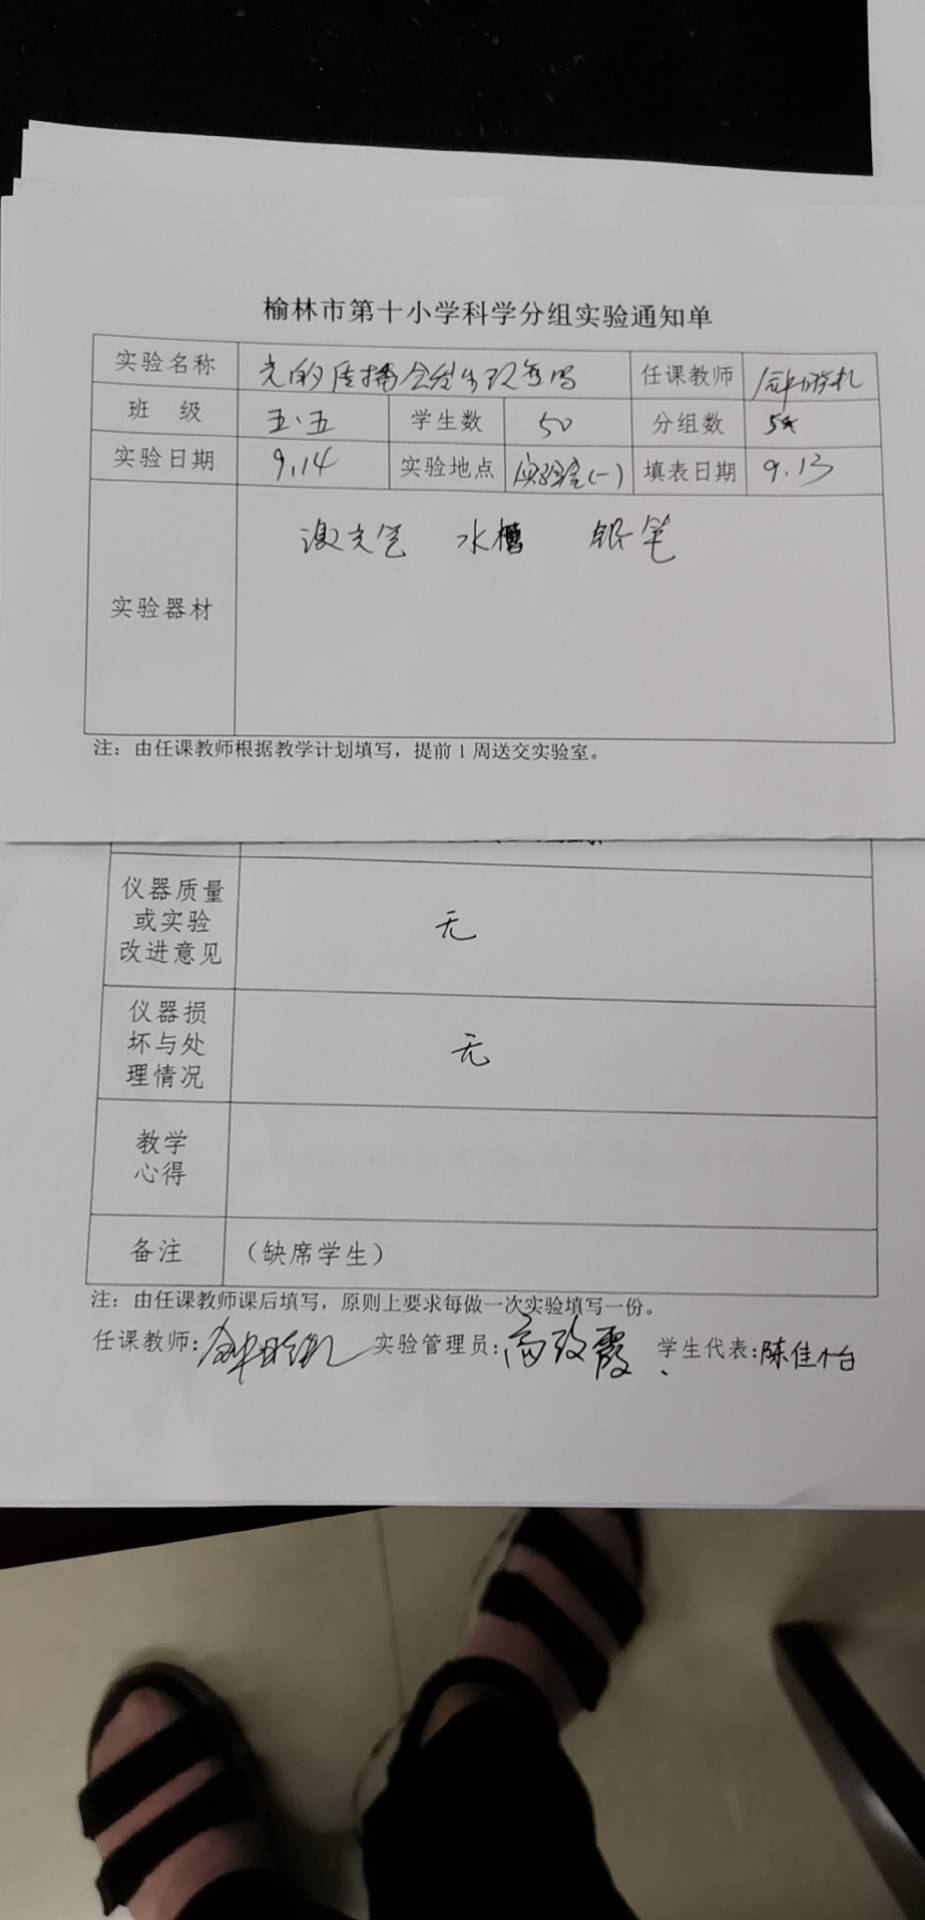 榆林市第十小学科学分组实验通知单
实验名称 光的传播会发生改变吗 任课教师
班 级 五.五 学生数 50 分组数 5
实验日期 9.14 实验地点 实验室(一) 填表日期 9.13
激光笔 水槽 铅笔
实验器材
注：由任课教师根据教学计划填写，提前1周送交实验室。
仪器质量
或实验
改进意见
无
仪器损
坏与处
理情况
无
教学
心得
备注 （缺席学生）
注：由任课教师课后填写，原则上要求每做一次实验填写一份。
任课教师： 实验管理员：高改霞 学生代表：陈佳怡